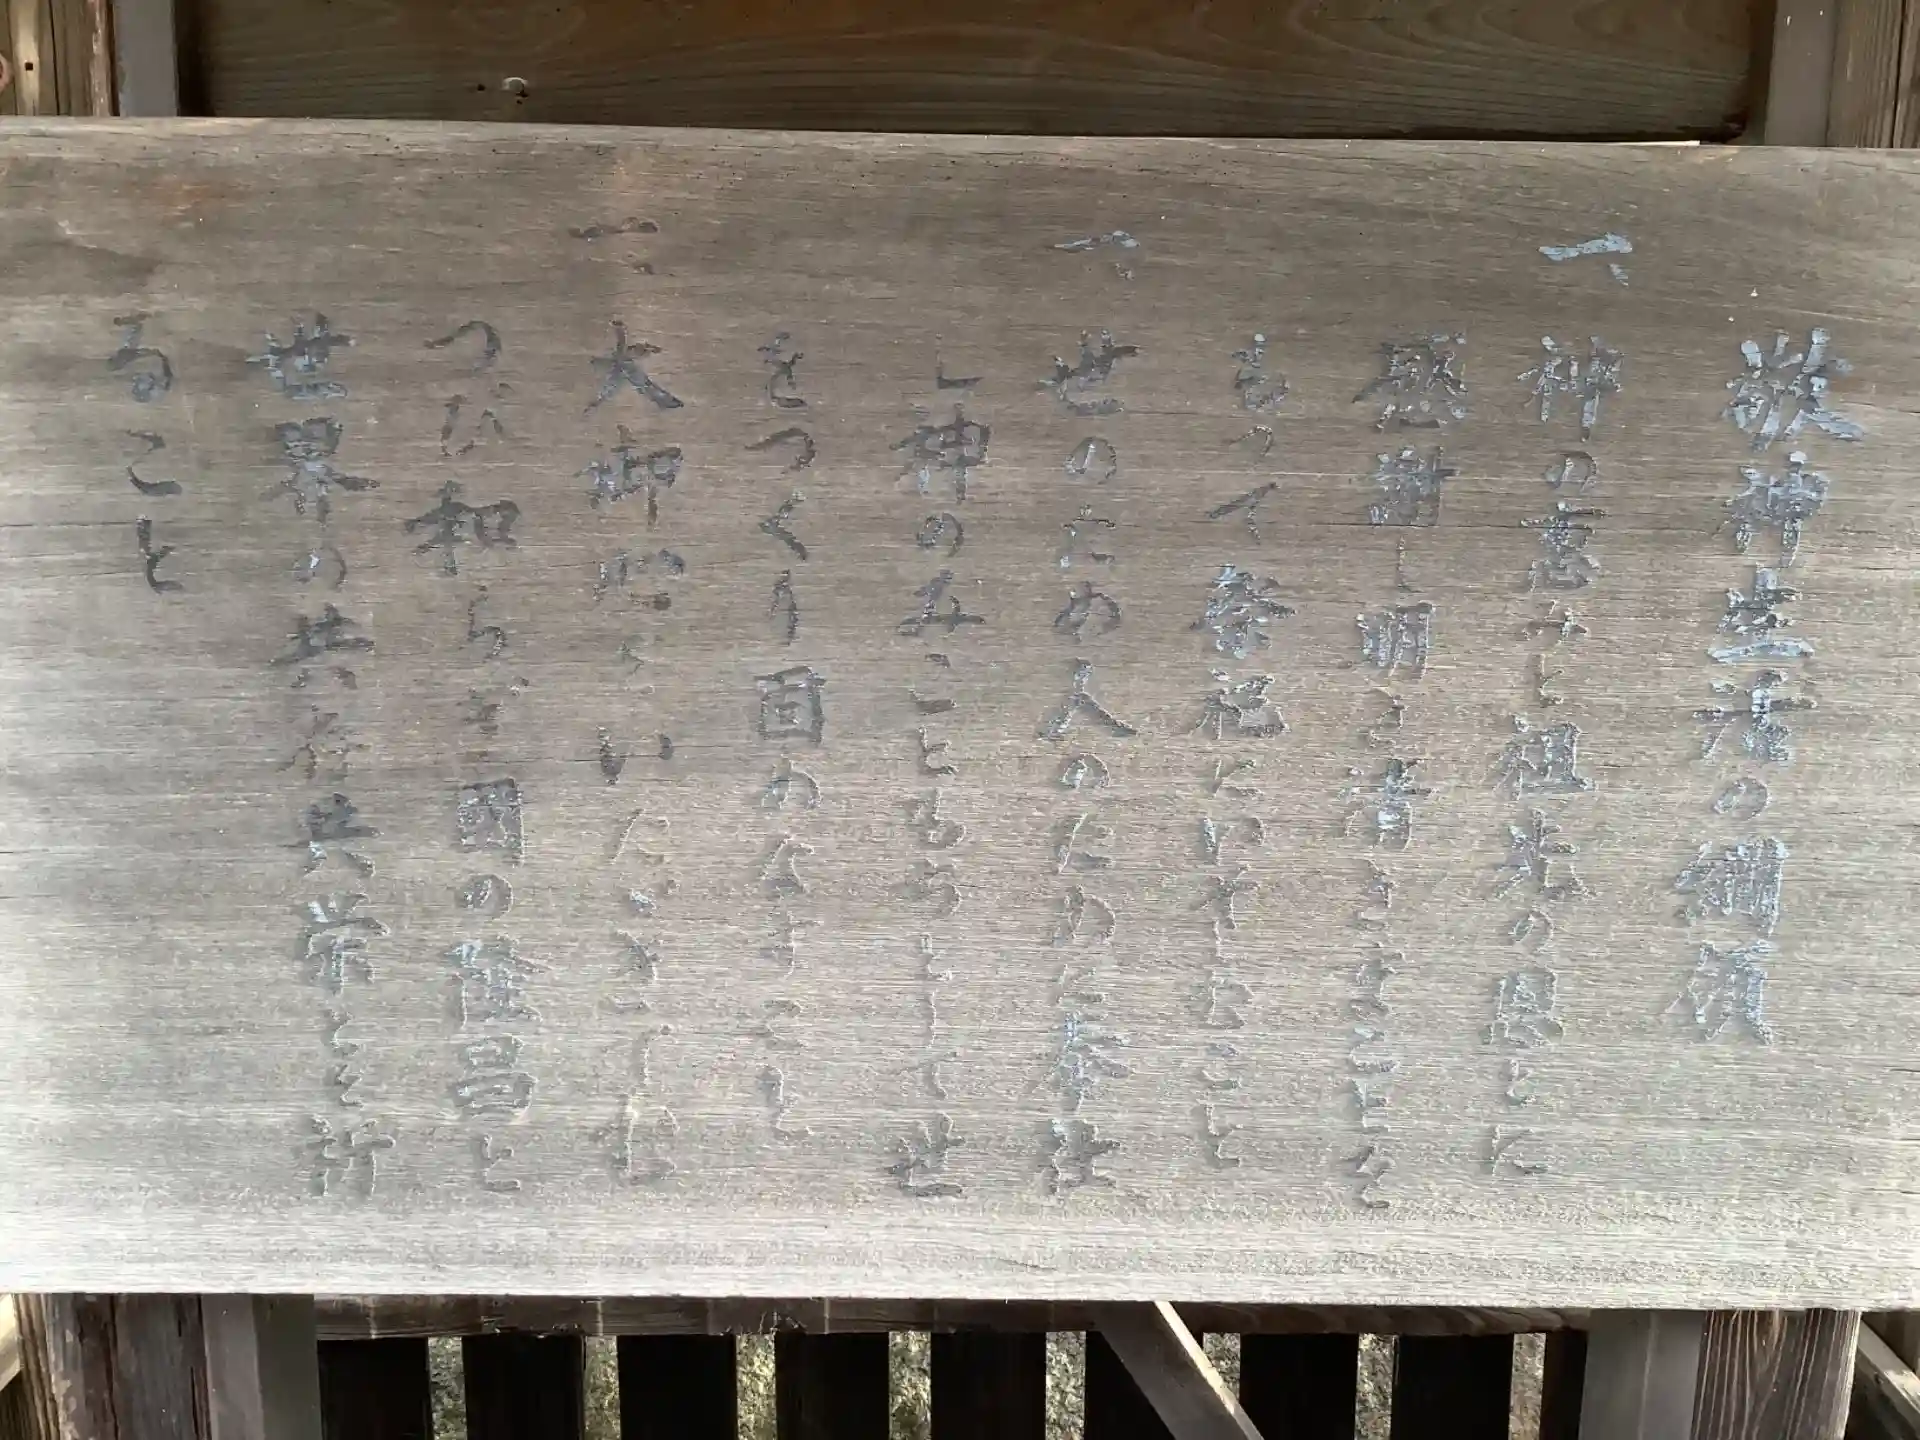 敬神生活の綱領
一、神の恵みと祖先の恩とに
感謝し明き清きまことを
もつて祭祀にいそしむこと
一、世のため人のために奉仕
し神のみこともちとして世
をつくり固めなすこと
一、大御心をいただきてむ
つび和らぎ國の隆昌と
世界の共存共栄とを祈
ること